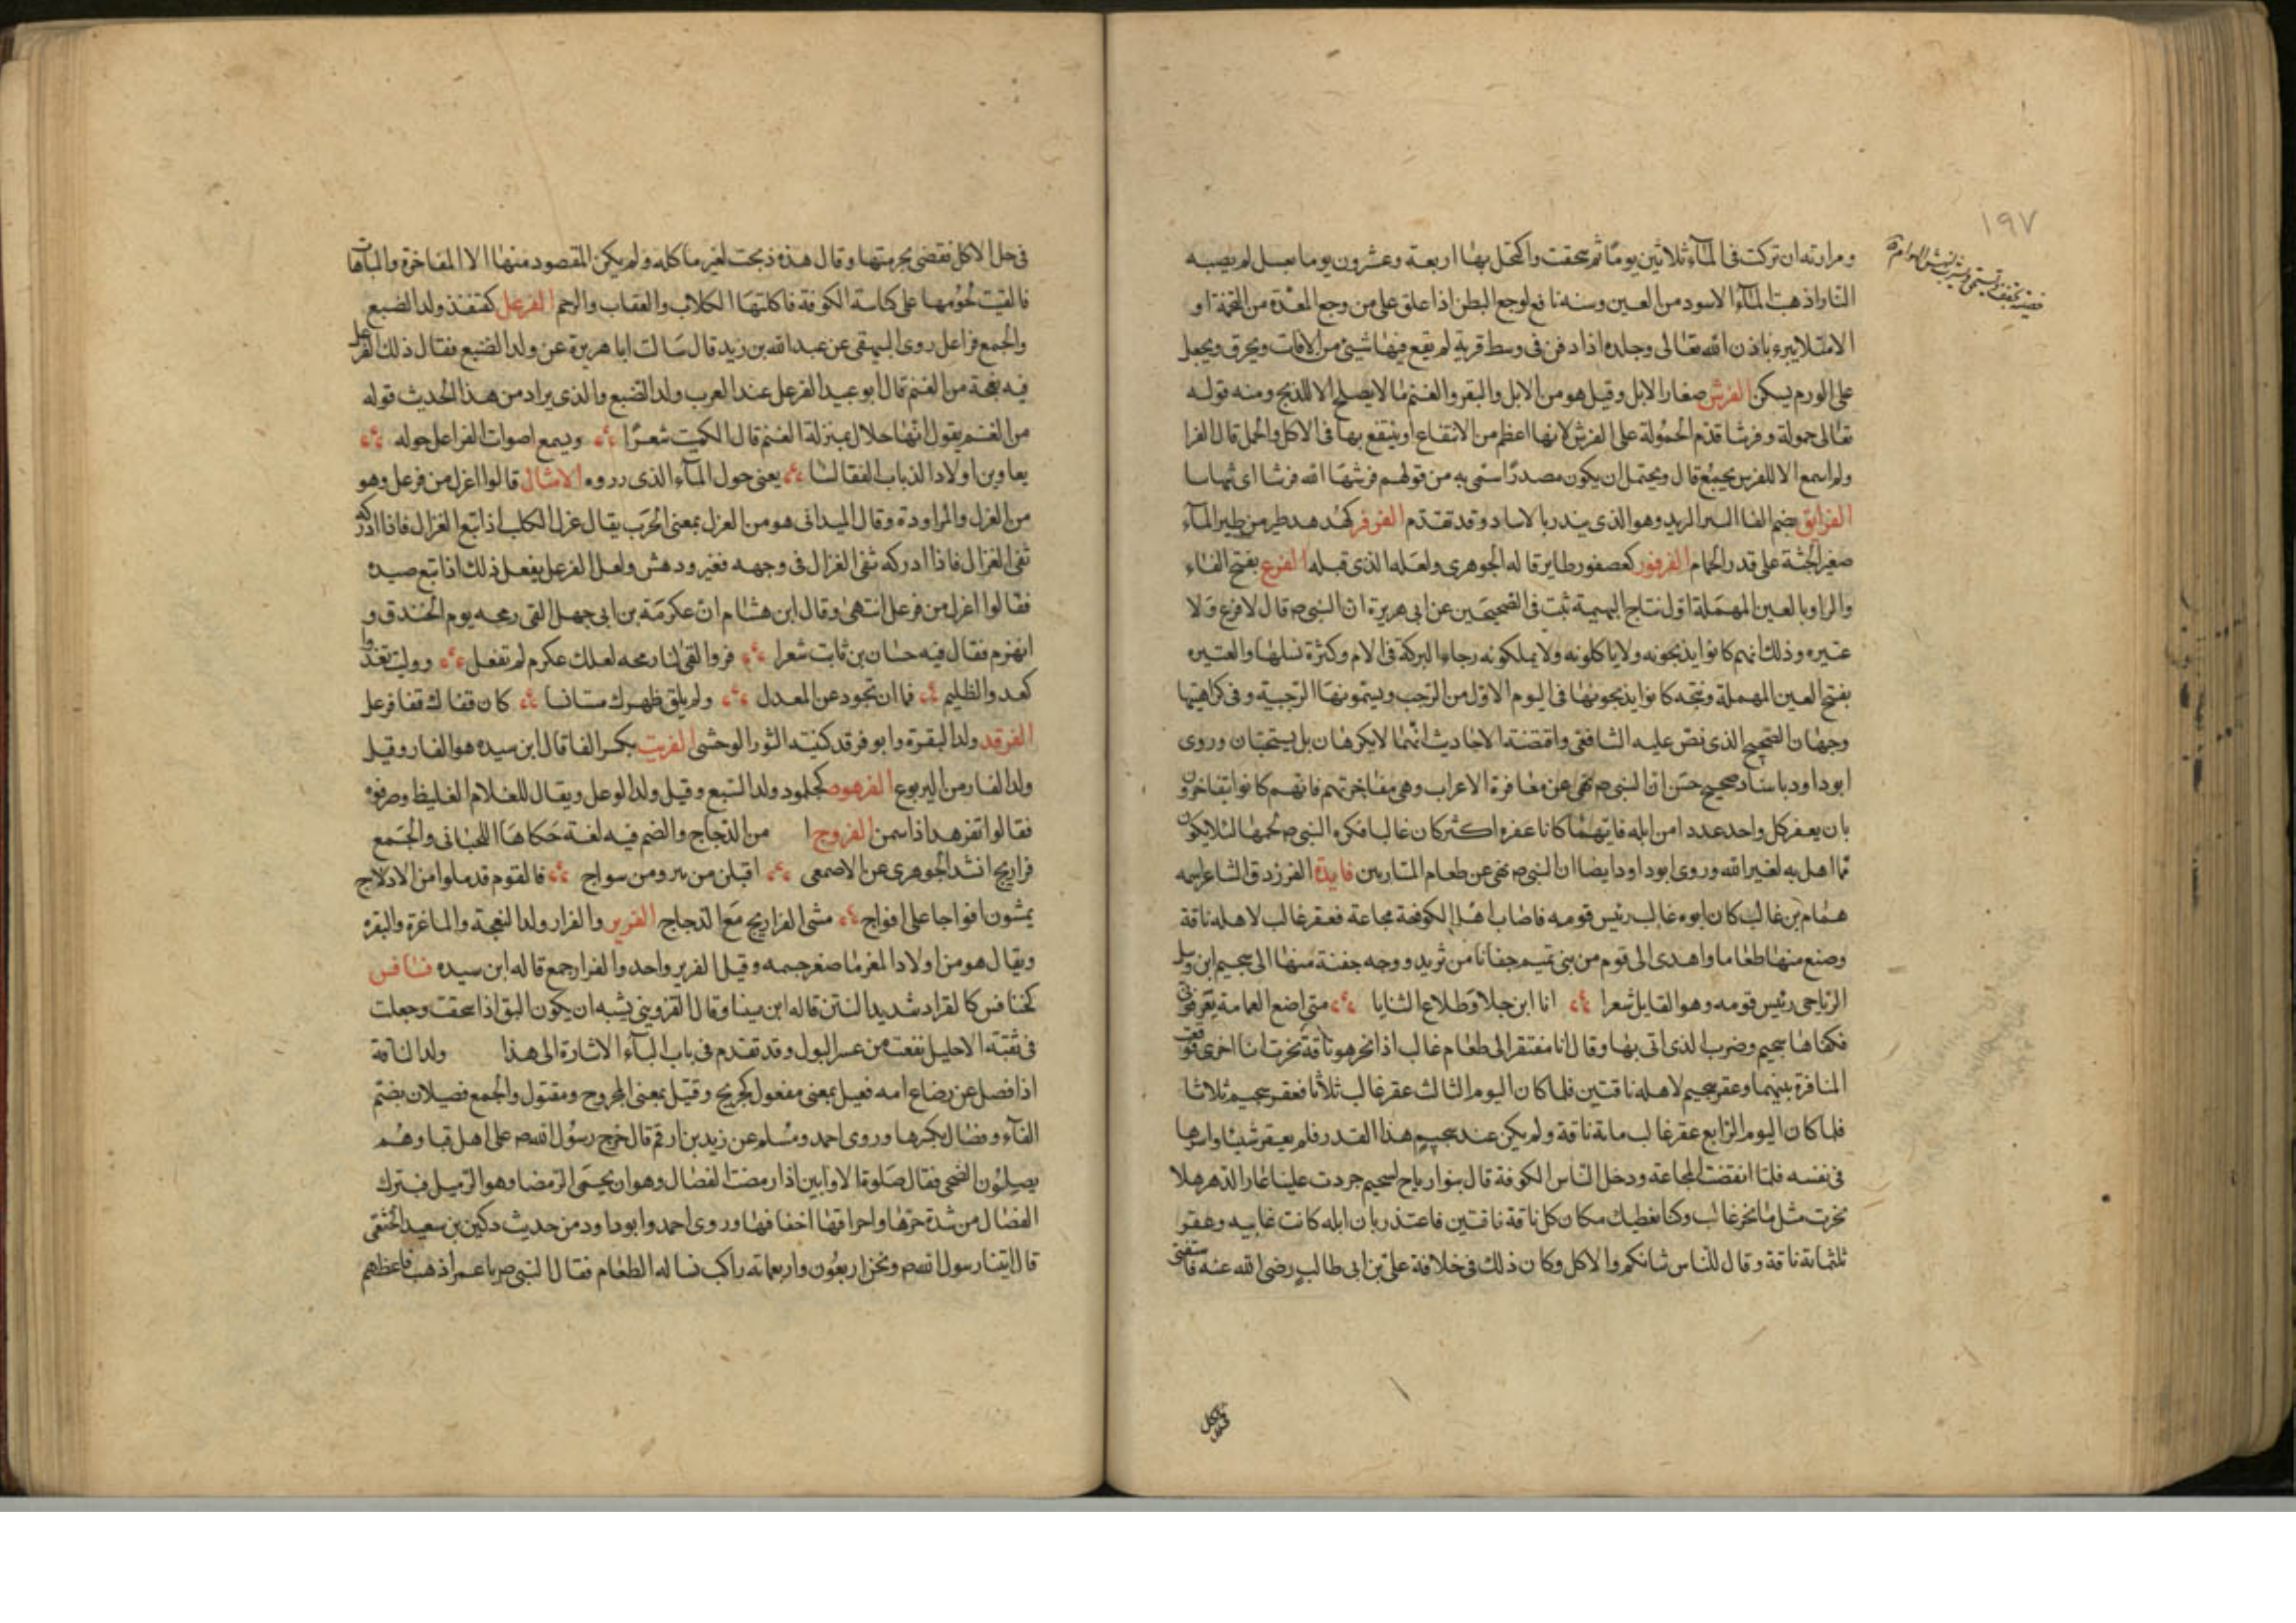 ١٩٧
ومرارته ان تركت فى المآء ثلاثين يومًا ثم سحقت واكتحل بهٰا اربعة وعشرون يوما بعسل لم يصبه
النار اذهبت المآء الاسود من العين وسنه نافع لوجع البطن اذا علق على من وجع المعدة من التخمة او
الامتلا يبرء باذن الله تعٰالى وجلده اذا دفن فى وسط قرية لم يقع فيهٰا شيئ من الافات ويحرق ويجعل
على الورم يسكن الفرش صغار الابل وقيل هو من الابل والبقر والغنم مٰا لا يصلح الا للذبح ومنه قوله
تعٰالى حمولة وفرشا قدم الحمُولة على الفرش لانها اعظم من الانتفاع اذ ينتفع بها فى الاكل والحمل قال الفرا
ولم اسمع الا للفرس بجمع قال ويحتمل ان يكون مصدرًا سمّى به من قولهم فرشهَا الله فرشا اى بثها بسا
الفرانق بضم الفا البير البريد وهو الذى ينذر بالاساد وقد تقدّم الفرفر كهُدهد طير من طير المآء
صغير الجثة على قدر الحمام الفرفور كعصفور طاير قاله الجوهرى ولعَله الذى قبله الفرع بفتح الفٰاء
والرا وبالعين المهمَلة اوّل نتاج البهيمة ثبت فى الصحيحَين عن ابى هريرة انّ النبى ص قال لا فرع وَلا
عتيره وذلك انهم كانوا يذبحونه ولا ياكلونه ولا يملكونه رجاء البركة فى الام وكثرة نسلهٰا والعتيره
بفتح العين المهملة ذبيحة كانوا يذبحونهٰا فى اليوم الاوّل من الرّجب ويسمونهَا الرّجبية وفى كراهيتها
وجهٰان الصّحيح الذى نصّ عليه الشافعى واقتضته الاحاديث انّهمٰا لا يكرهٰان بل يستحبّان وروى
ابو داود باسناد صحيح حسَن انّ النبى ص نهى عن معٰاقرة الاعراب وهى مفٰاخرتهم فانهم كانوا يتفاخرون
بان يعقر كل واحد عددا من ابله فايهمٰا كانا عقره اكثر كان غالبا فكره النبى ص لحمهٰا لئلا يكون
ممّا اهل به لغير الله وروى ابو داود ايضا ان النبى ص نهى عن طعام المتباريين فايدة الفرزدق الشاعر اسمه
همٰام بن غالب كان ابوه غالب رئيس قومه فاصٰاب اهل الكوفة مجاعة فعقر غالب لاهله ناقة
وصنع منهٰا طعٰاما واهدى الى قوم من بنى تميم جفانا من ثريد ووجه جفنة منهٰا الى سحيم ابن وثيل
الرّياحى رئيس قومه وهو القايل شعرا انا ابن جلا وَطلاع الثنايا متى اضع العمامة يعَرفونى
فكفٰاها سحيم وضرب الذى اتى بهٰا وقال انا مفتقر الى طعٰام غالب اذا نحر هو ناقة نحرت انٰا اخرى فوقعت
المنافرة بينهما وعقر سحيم لاهله ناقتين فلما كان اليوم الثالث عقر غالب ثلاثا فعقر سحيم ثلاثا
فلما كان اليوم الرّابع عقر غالب مائة ناقة ولم يكن عند سحيم هذا القدر فلم يعقر شيئا واسرها
فى نفسه فلمّا انقضت المجاعة ودخل النّاس الكوفة قال بنو ارياح لسحيم جررت علينا عٰار الدّهر هلا
نحرت مثل مٰا نحر غالب وكنا نعطيك مكان كل ناقة ناقتين فاعتذر بان ابله كانت غايبه وعقر
ثلثمائة ناقة وقال للنّاس شانكم والاكل وكان ذلك فى خلافة على بن ابى طالب رضى الله عنه فاستفتى
فى حل الاكل فقضى بحرمتها وقال هذه ذبحت لغير ماكله ولم يكن المقصود منهٰا الا المفاخرة والمباهاة
فالقيت لحُومها على كناسة الكوفة فاكلتهَا الكلاب والعقاب والرحم الفرعل كقنفذ ولد الضبع
والجمع فراعل روى البيهقى عن عبد الله بن زيد قال سَالت ابا هريرة عن ولد الضبع فقال ذلك الفرعل
فيه نعجة من الغنم قال ابو عبيد الفرعل عند العرب ولد الضبع والذى يراد من هذا الحديث قوله
من الغنم يقول انّهٰا حلال بمنزلة الغنم قال الكميت شعرًا ويسمع اصوات الفراعل حوله
يعاوين اولاد الذياب الفقالسٰا يعنى حول المآء الذى رروه الامثال قالوا اغزل من فرعل وهو
من الغزل والمراودة وقال الميدانى هو من الغزل بمعنى الخرَب يقال غزل الكلب اذا تبع الغزال فاذا ادركه
ثغى الغزال فاذا ادركه ثغى الغزال فى وجهه ففتر ودهش ولعل الفرعل يفعل ذلك اذا تبع صيده
فقالوا اغزل من فرعل انتهىٰ وقال ابن هشٰام انّ عكرمَة بن ابى جهل القى رمحه يوم الخندق و
انهزم فقال فيه حسٰان بن ثابت شعرا فروا لقىٰ لنا رمحه لعلك عكرم لم تفعل ووليت تغدوا
كعدو الظليم فما ان تجود عن المعدل ولم يلق ظهرك مستانسا كان قفٰاك قفٰا فرعل
الفرقد ولد البقرة وابو فرقد كنيته الثور الوحشى الفرنب بكسر الفا قال ابن سيده هو الفار وقيل
ولد الفار من اليربوع الفرهود كجلمود ولد السّبع وقيل ولد الوعل ويقال للغلام الغليظ وصرفوه
فقالوا تفرهد اذا سمن الفروج من الدّجاج والضم فيه لغة حَكاهَا اللحيانى والجَمع
فراريج انشد الجوهرى عن الاصمعى اقبلن من بير ومن سواج فالقوم قد ملوا من الادلاج
يمشون افواجا على افواج مشى الفراريج مَع الدجاج الفرير والفرار ولد النعجة والماعزة والبقرة
ويقال هو من اولاد المعز مٰا صغر جسمه وقيل الفرير واحد والفرار جمع قاله ابن سيده فسٰافس
كخنافس كالقراد شديد النتن قاله ابن سينا وقال القزوينى يشبه ان يكون البق اذا سحقت وجعلت
فى ثقبة الاحليل نفعت من عسر البول وقد تقدم فى باب البآء الاشارة الى هذا ولد النٰاقة
اذا فصل عن رضاع امه فعيل بمعنى مفعول كجريح وقتيل بمعنى المجروح ومقتول والجمع فصيلان بضمّ
الفآء وفصٰال بكسرها وروى احمد ومُسلم عن زيد بن ارقم قال خرج رسُول الله ص على اهل قبا وهُم
يصلّون الضحى فقال صَلوة الاوّابين اذا رمضت الفصٰال وهو ان يحمَى الرمضا وهو الرّميل فيترك
الفصٰال من شدّة حرّهٰا واحراقهٰا اخفافهٰا وروى احمد وابو داود من حديث دكين بن سعيد الخثعمى
قال اتينا رسول الله ص ونحن اربعُون واربعمائة راكب نساله الطعٰام فقال النبى ص يا عمر اذهب فاعطهم